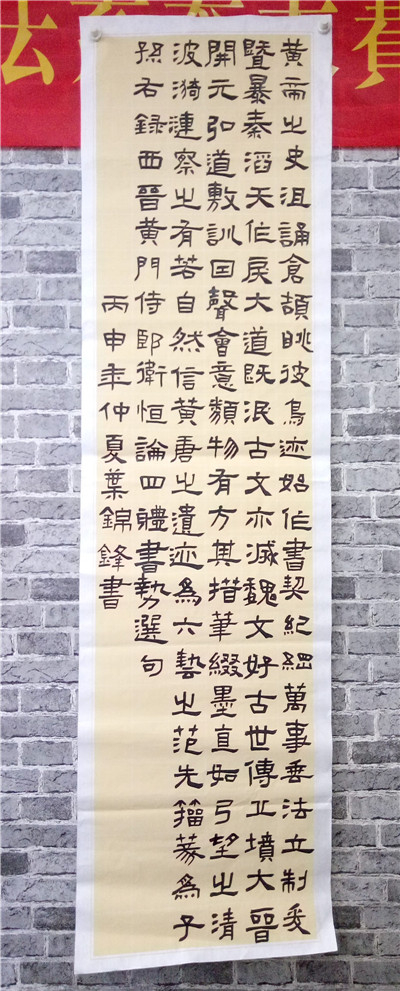 黄帝之史沮誦倉頡眺彼鳥迹始作書契紀綱萬事垂法立制爰
暨暴秦滔天作戾大道既泯古文亦滅魏文好古世傳丘墳大晉
開元弘道敷訓因聲會意類物有方其措筆綴墨直如弓望之清
波漪漣察之有若自然信黄唐之遺迹為六藝之范先籀篆為子
孫右録西晉黄門侍郎衛恒論四體書勢選句
丙申年仲夏葉錦鋒書